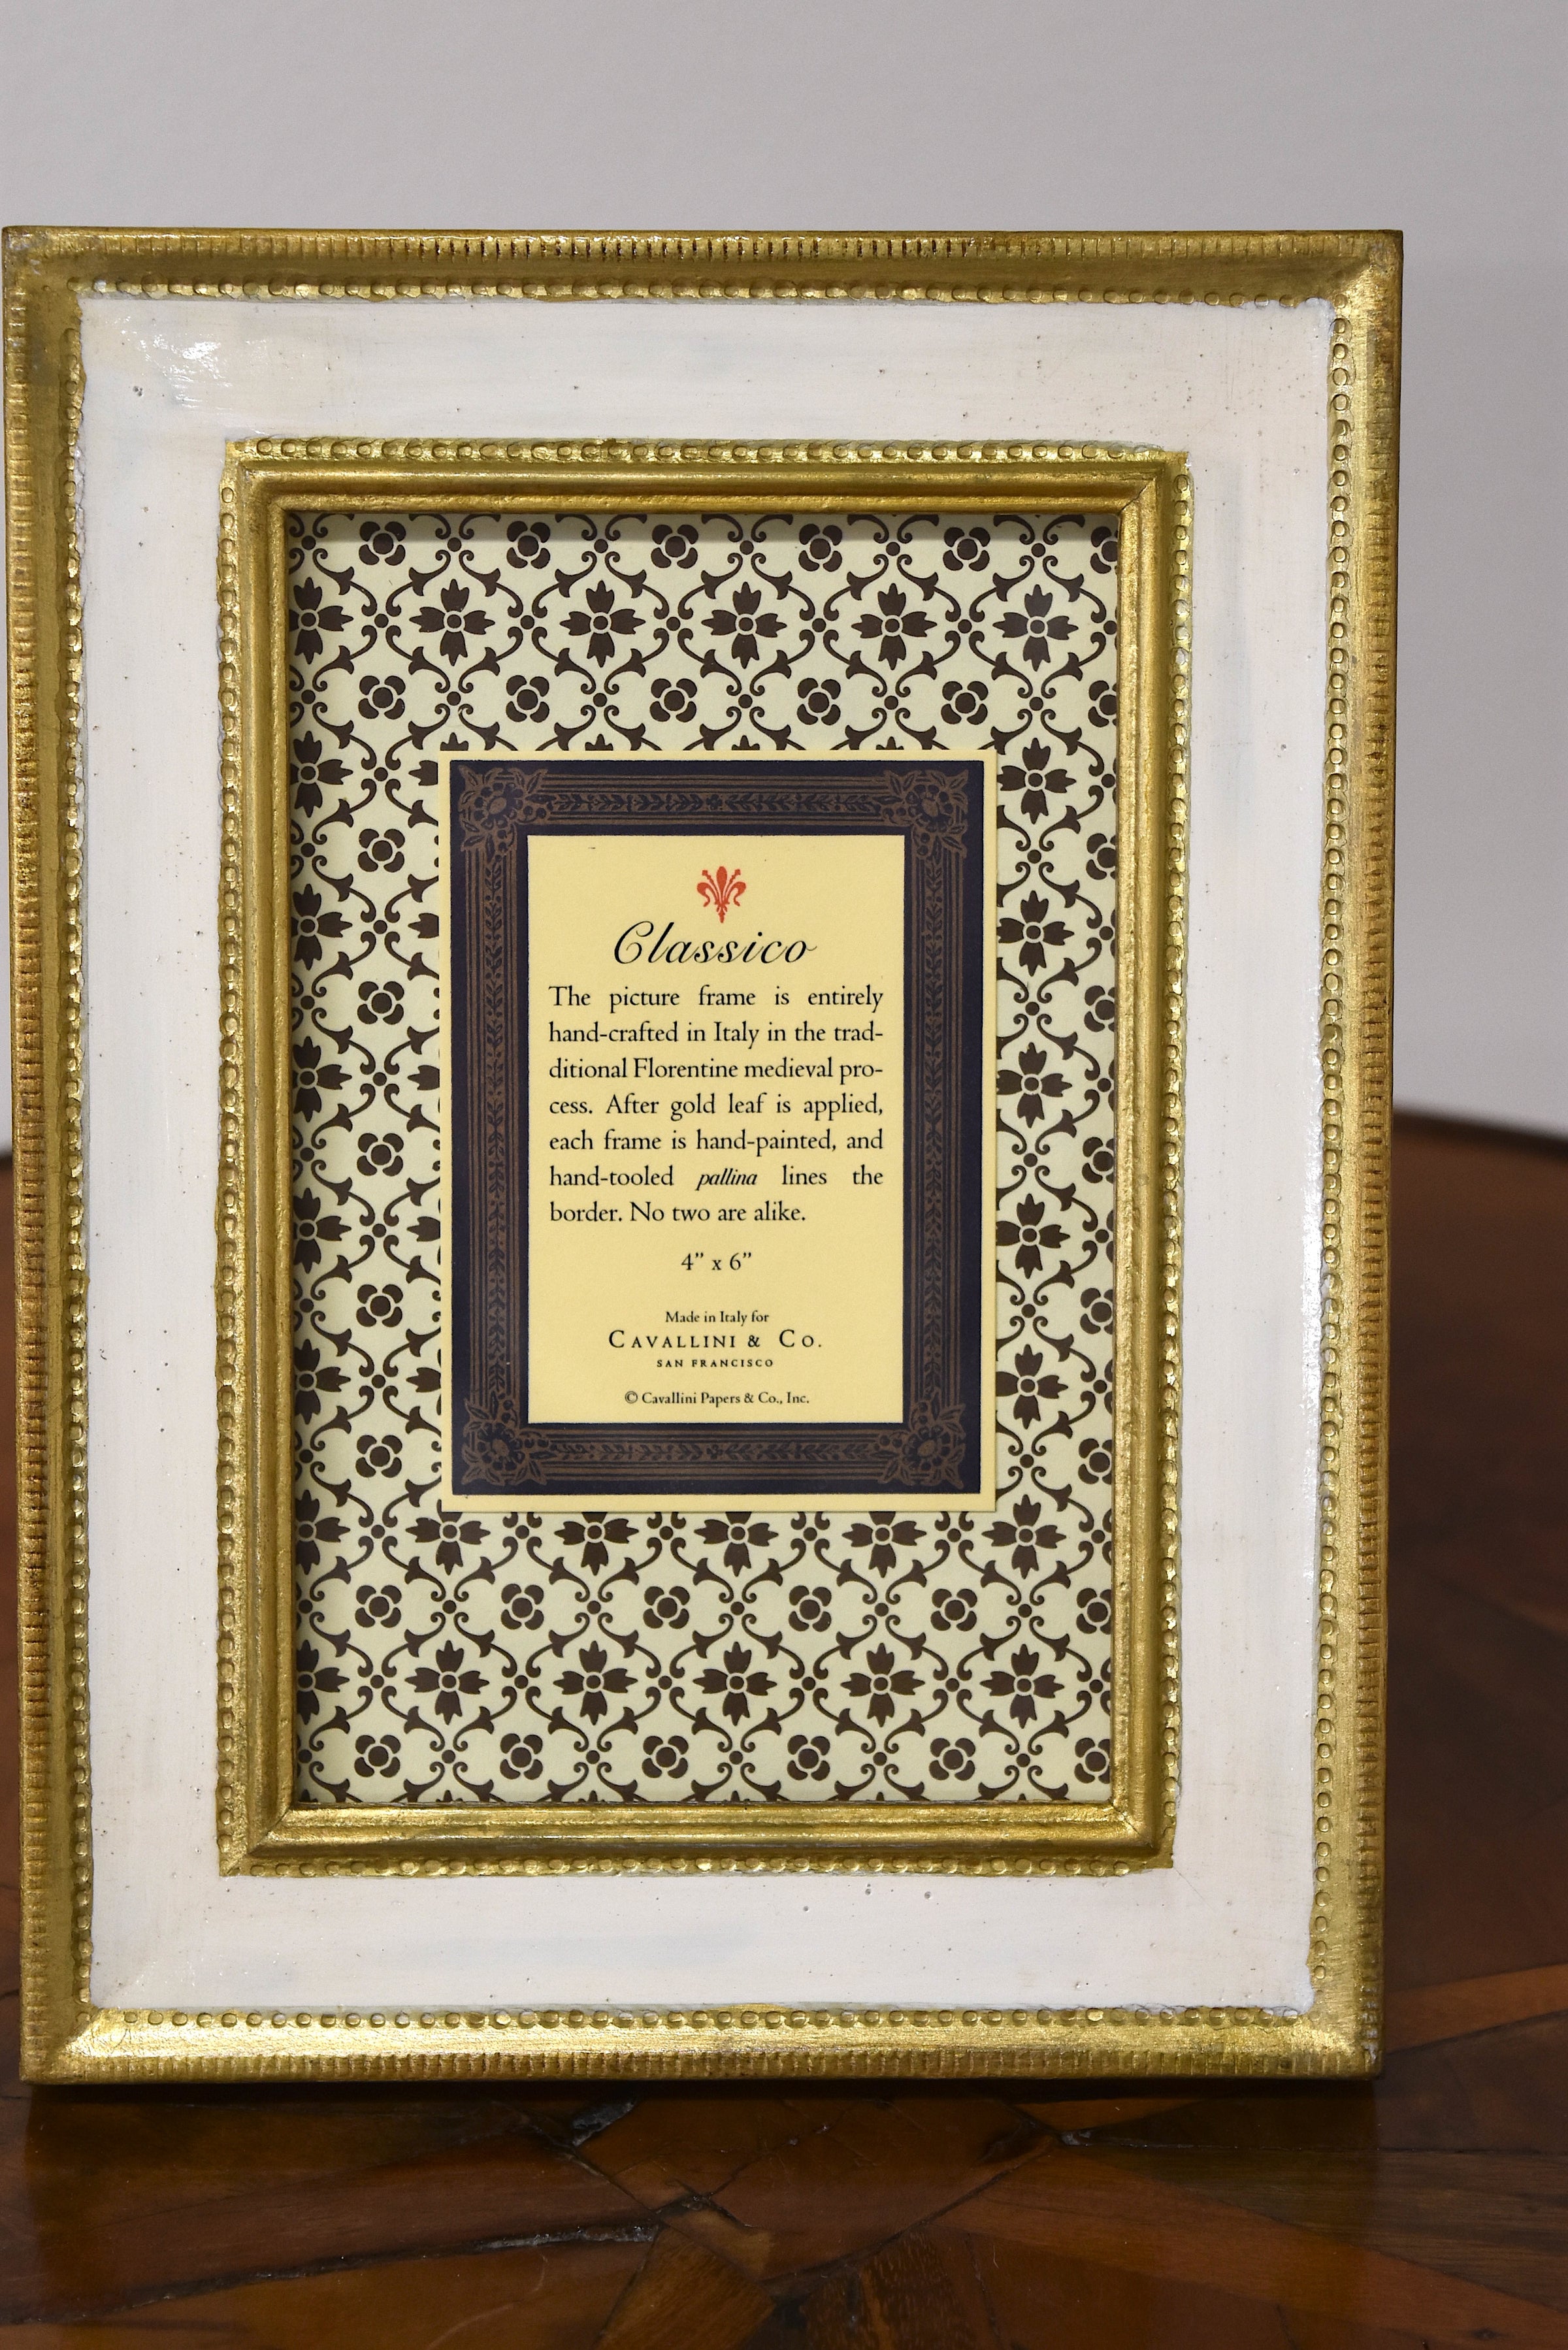 Classico
The picture frame is entirely
hand-crafted in Italy in the trad-
ditional Florentine medieval pro-
cess. After gold leaf is applied,
each frame is hand-painted, and
hand-tooled pallina lines the
border. No two are alike.
4” x 6”
Made in Italy for
CAVALLINI & CO.
SAN FRANCISCO
© Cavallini Papers & Co., Inc.